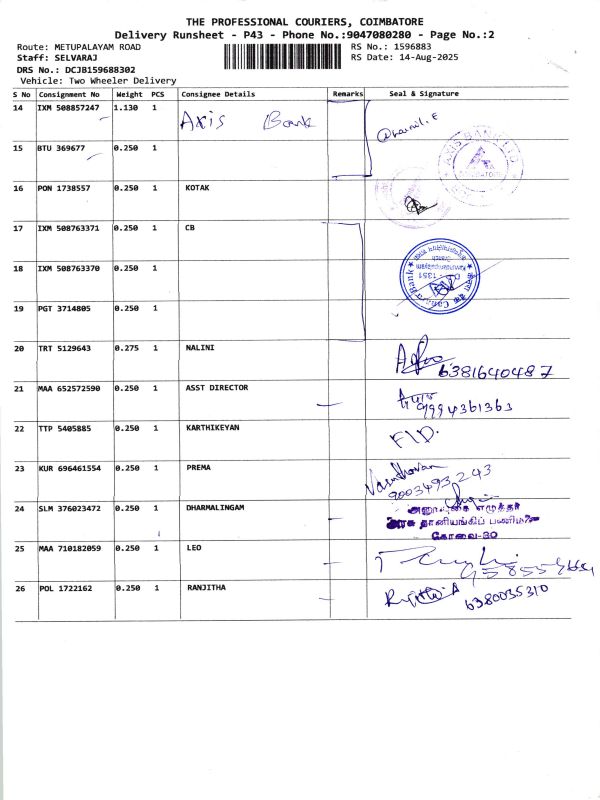 THE PROFESSIONAL COURIERS, COIMBATORE
Delivery Runsheet - P43 - Phone No.:9047080280 - Page No.:2
Route: METUPALAYAM ROAD RS No.: 1596883
Staff: SELVARAJ RS Date: 14-Aug-2025
DRS No.: DCJB159688302
Vehicle: Two Wheeler Delivery
S No Consignment No Weight PCS Consignee Details Remarks Seal & Signature
14 IXM 508857247 1.130 1 Axis Bank
15 BTU 369677 0.250 1 AXIS BANK LTD
16 PON 1738557 0.250 1 KOTAK
17 IXM 508763371 0.250 1 CB
18 IXM 508763370 0.250 1 Canara Bank 1351
19 PGT 3714805 0.250 1
20 TRT 5129643 0.275 1 NALINI 6381640487
21 MAA 652572590 0.250 1 ASST DIRECTOR 9994361363
22 TTP 5405885 0.250 1 KARTHIKEYAN
23 KUR 696461554 0.250 1 PREMA 9003493243
24 SLM 376023472 0.250 1 DHARMALINGAM
கோவை-30
25 MAA 710182059 0.250 1 LEO
26 POL 1722162 0.250 1 RANJITHA 6380035310